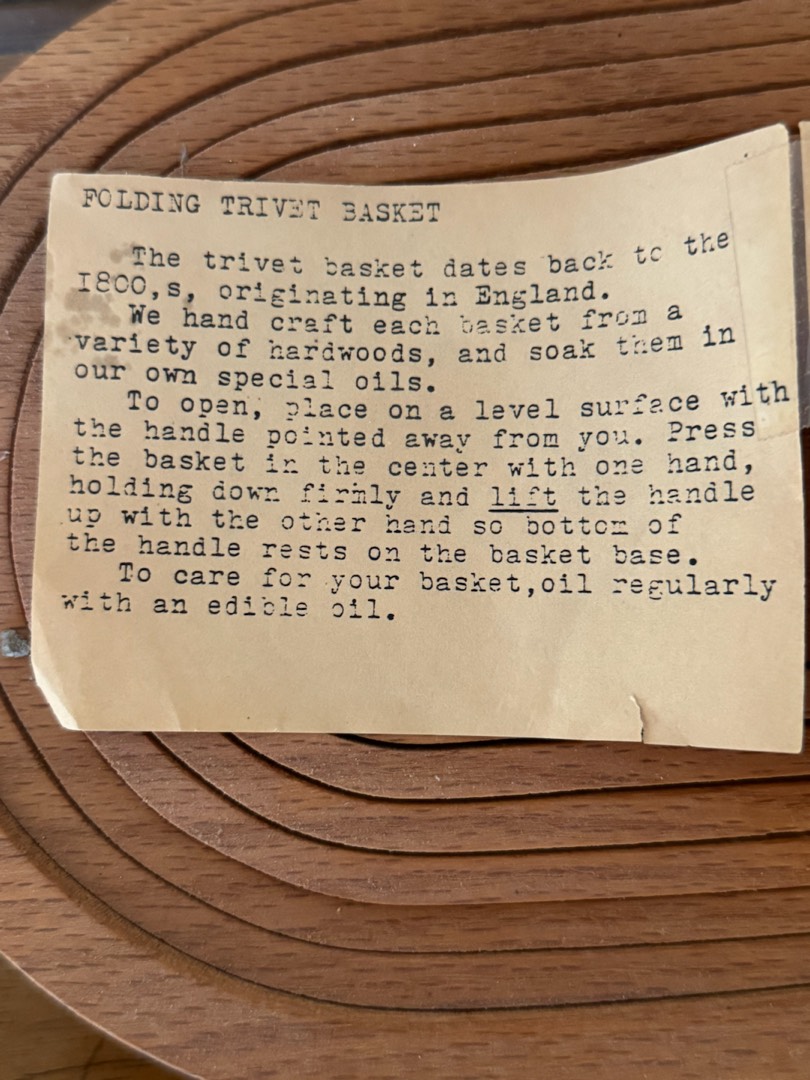 FOLDING TRIVET BASKET
The trivet basket dates back to the
I800,s, originating in England.
We hand craft each basket from a
variety of hardwoods, and soak them in
our own special oils.
To open, place on a level surface with
the handle pointed away from you. Press
the basket in the center with one hand,
holding down firmly and lift the handle
up with the other hand so bottom of
the handle rests on the basket base.
To care for your basket,oil regularly
with an edible oil.